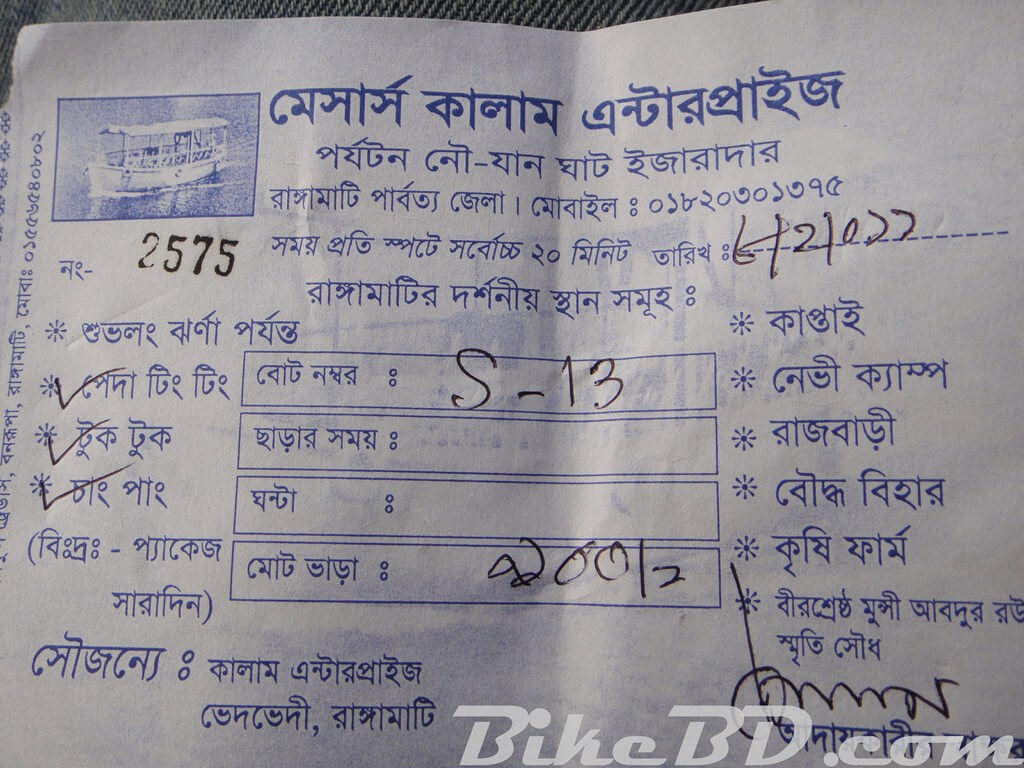 মেসার্স কালাম এন্টারপ্রাইজ
পর্যটন নৌ-যান ঘাট ইজারাদার
রাঙ্গামাটি পার্বত্য জেলা। মোবাইল : ০১৮২০৩০১৩৭৫
নং- 2575
সময় প্রতি স্পটে সর্বোচ্চ ২০ মিনিট তারিখ :
রাঙ্গামাটির দর্শনীয় স্থান সমূহ :
শুভলং ঝর্ণা পর্যন্ত
পেদা টিং টিং
টুক টুক
চাং পাং
(বিঃদ্রঃ - প্যাকেজ
সারাদিন)
বোট নম্বর : S-13
ছাড়ার সময় :
ঘন্টা :
মোট ভাড়া :
কাপ্তাই
নেভী ক্যাম্প
রাজবাড়ী
বৌদ্ধ বিহার
কৃষি ফার্ম
বীরশ্রেষ্ঠ মুন্সী আবদুর রউ
স্মৃতি সৌধ
সৌজন্যে : কালাম এন্টারপ্রাইজ
ভেদভেদী, রাঙ্গামাটি
আদায়কারীর
বনরূপা, রাঙ্গামাটি, মোবাঃ ০১৫৫৬৫৪০৮০২
BikeBD.com